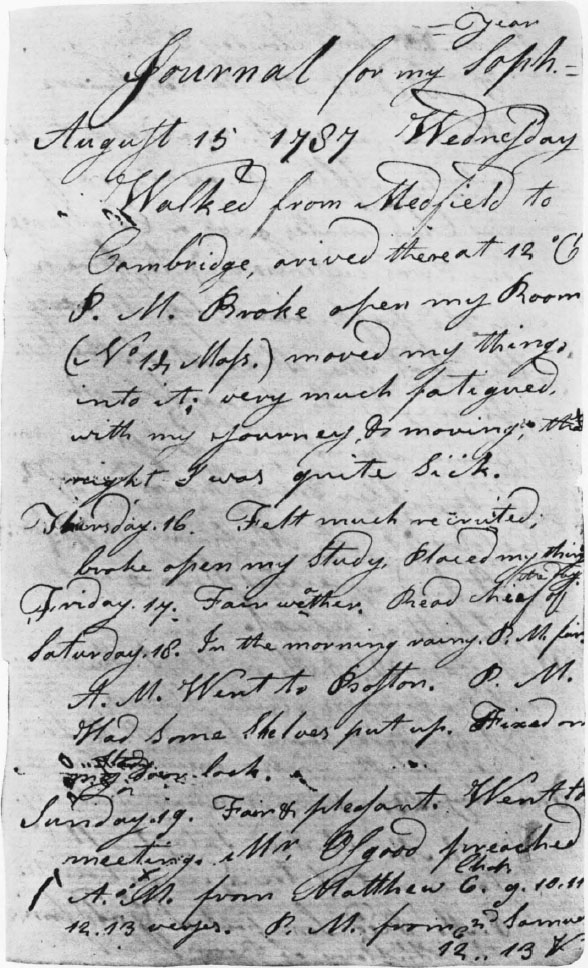 = Year
Journal for my Soph.=
August 15 1787 Wednesday
Walked from Medfield to
Cambridge, arived there at 12 °C
P. M. Broke open my Room
(No 12 Mass.) moved my things
into it; very much fatigued,
with my journey, & moving; this
night I was quite sick.
Thursday. 16. Felt much recruited;
broke open my Study. Placed my things
Friday. 17. Fair weather. Read cheef of
the day.
Saturday. 18. In the morning rainy. P. M. fair.
A. M. Went to Boston. P. M.
Had some Shelves put up. Fixed on
lock.
Sunday. 19. Fair & pleasant. Went to
meeting. Mr. Osgood preached
A. M. from Matthew 6. Ch. 9. 10. 11
12. 13 verses. P. M. from 2nd Samue
12.. 13 V.